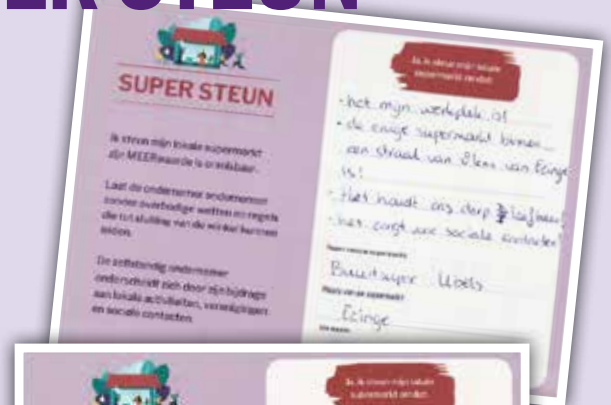 ER STEUN
SUPER STEUN
Ik steun mijn lokale supermarkt
zijn MEERwaarde is onmisbaar.
Laat de ondernemer ondernemen
zonder overbodige wetten en regels
die tot sluiting van de winkel kunnen
leiden.
De zelfstandig ondernemer
onderscheidt zich door zijn bijdrage
aan lokale activiteiten, verenigingen
en sociale contacten.
Ja, ik steun mijn lokale
supermarkt omdat:
- het mijn werkplek is!
- de enige supermarkt binnen
een straal van 8 km van Ezinge
is!
- Het houdt ons dorp leefbaar!
- het zorgt voor sociale contacten!
Naam van uw supermarkt:
Buurtsuper
Plaats van uw supermarkt:
Ezinge
Uw naam:
Ja, ik steun mijn lokale
supermarkt omdat: